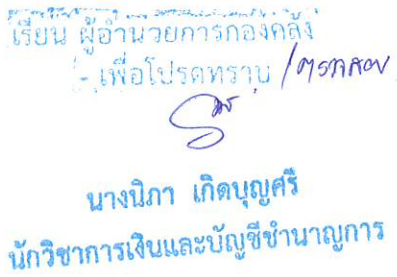 เรียน ผู้อำนวยการกองคลัง
- เพื่อโปรดทราบ / ตรวจสอบ
นางนิภา เกิดบุญศรี
นักวิชาการเงินและบัญชีชำนาญการ